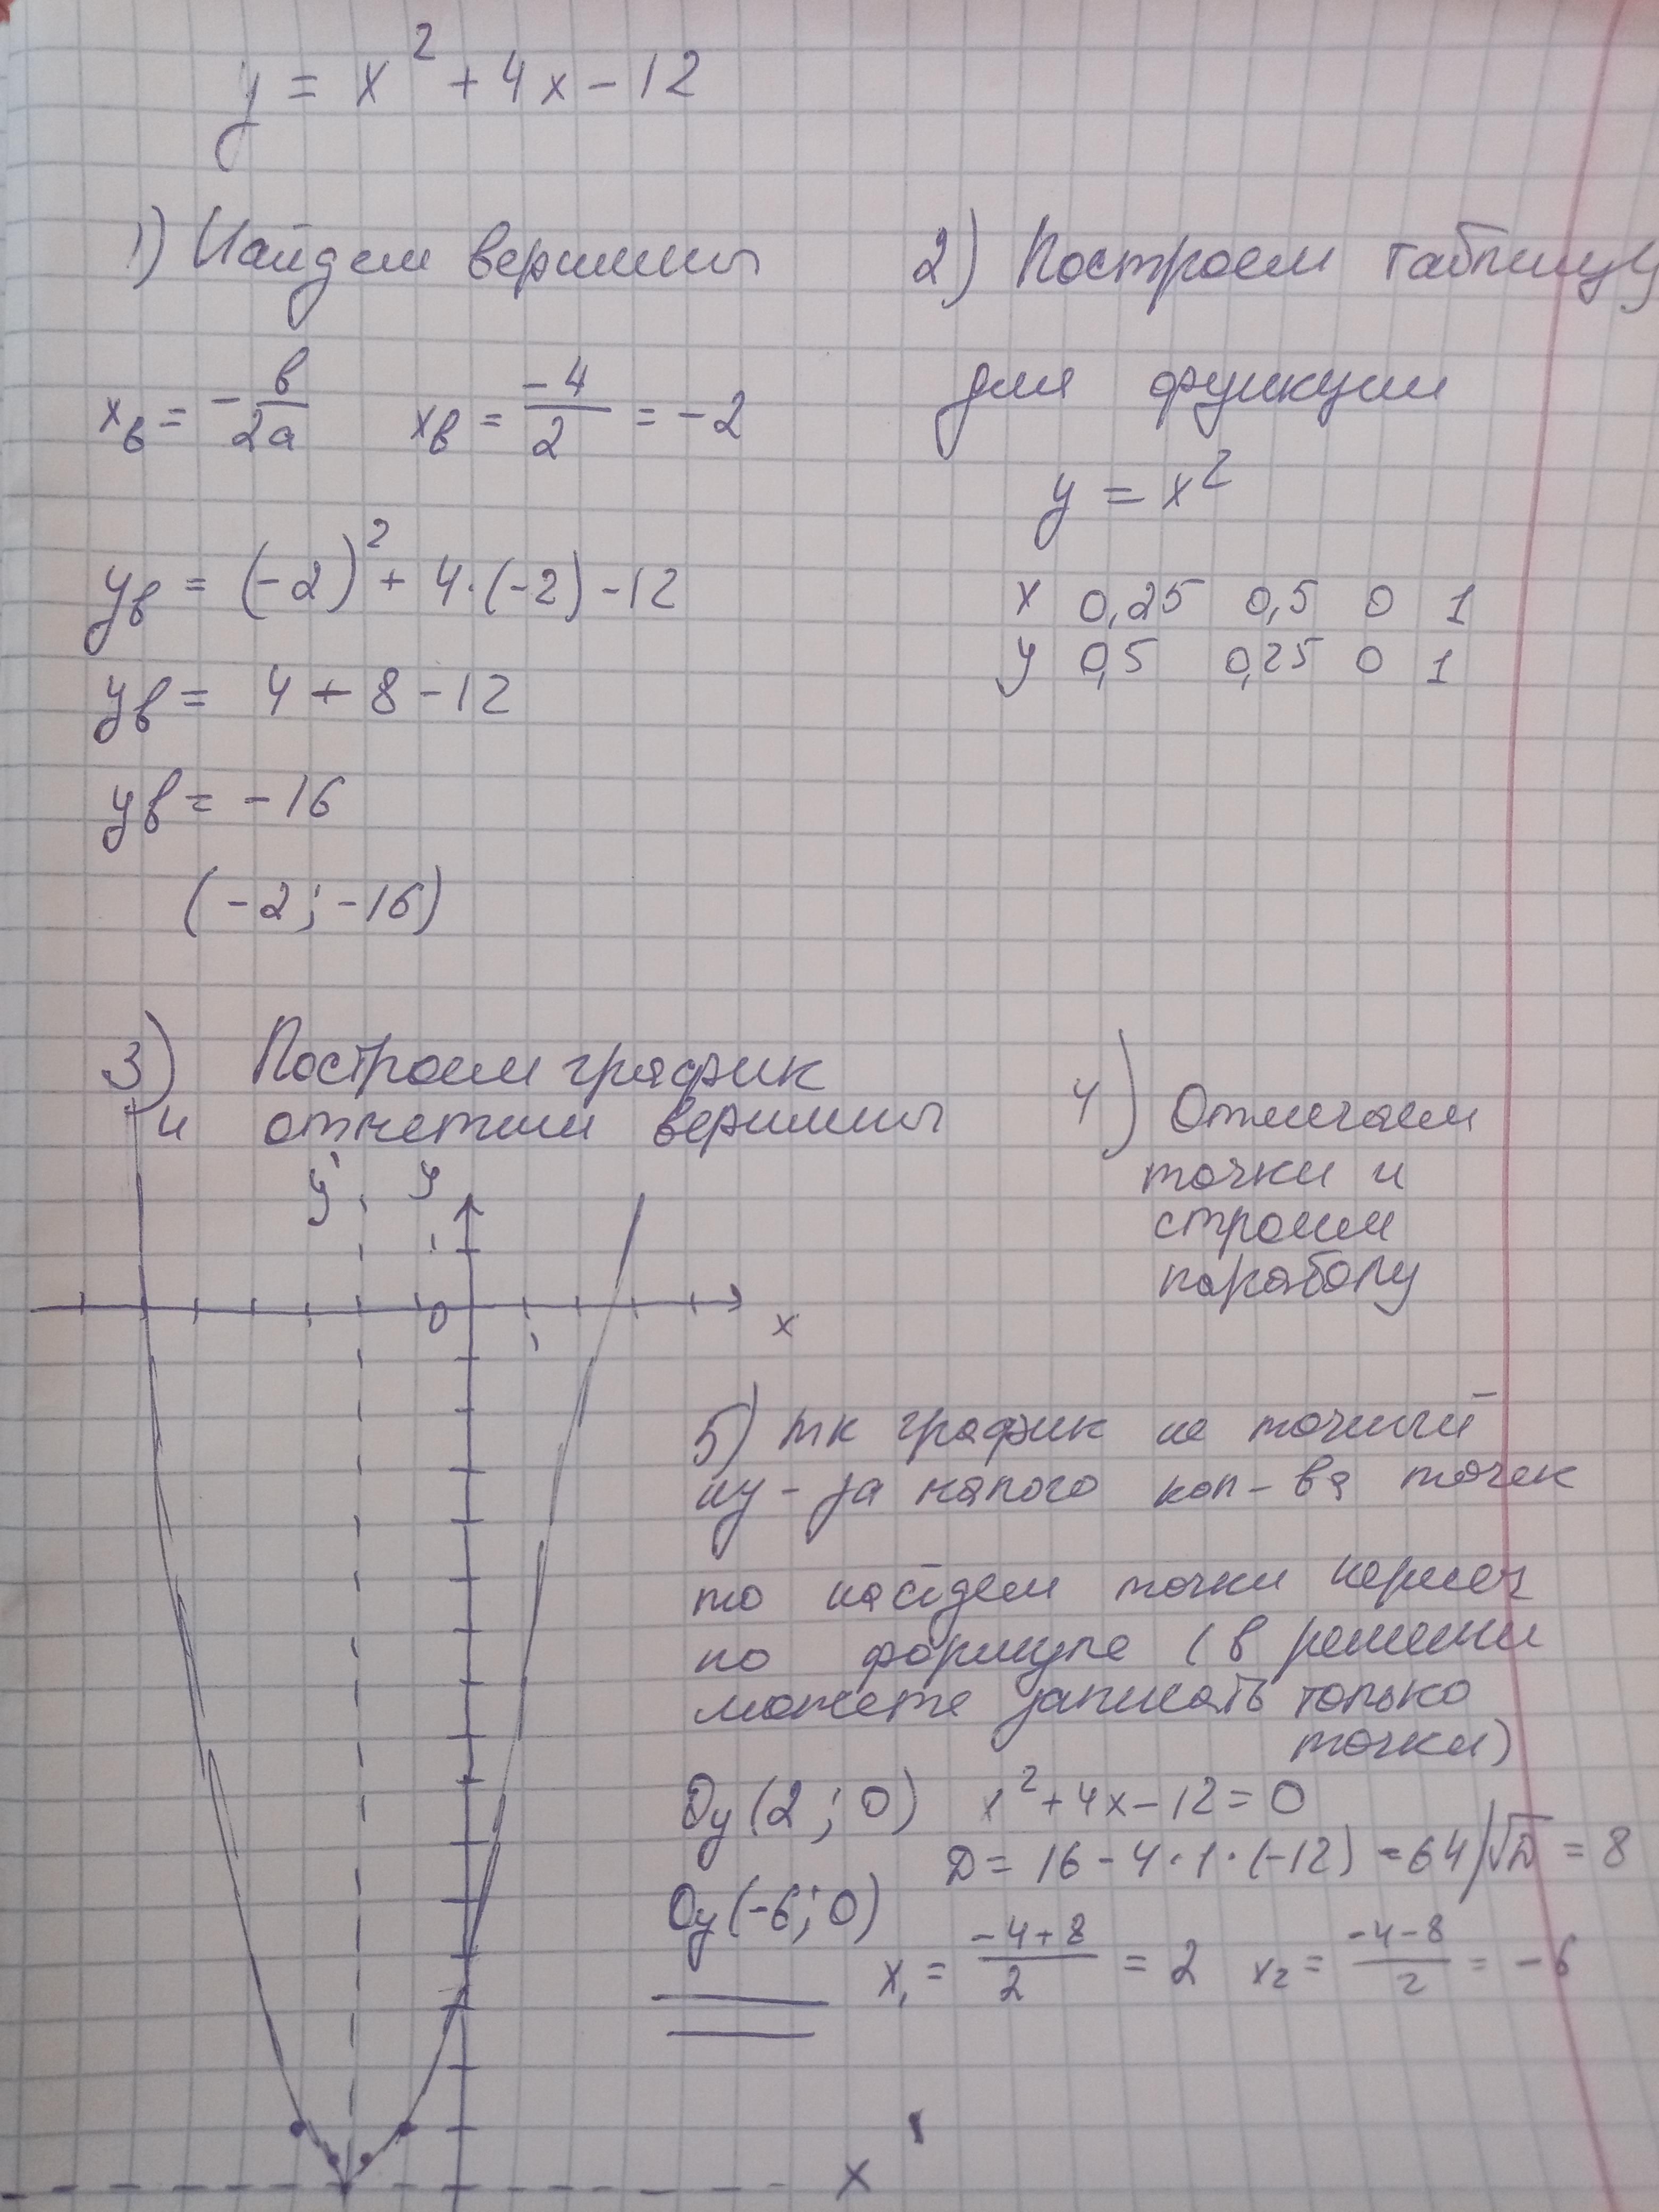 y = x² + 4x - 12
1) Найдем вершины
x_в = -в/2a   x_в = -4/2 = -2
y_в = (-2)² + 4·(-2) - 12
y_в = 4 + 8 - 12
y_в = -16
(-2; -16)
2) Построем таблицу
для функции
y = x²
x 0,25 0,5 0 1
y 0,5 0,25 0 1
3) Построем график
и отметим вершины
y' y
1
0
1
x
4) Отмечаем
точки и
строим
параболу
5) тк график не точный
из-за малого кол-ва точек
то найдем точки
по формуле (в решении
можете записать только
точки)
Oy (2; 0)   x² + 4x - 12 = 0
D = 16 - 4·1·(-12) = 64 / √D = 8
Oy (-6; 0)
x₁ = (-4+8)/2 = 2   x₂ = (-4-8)/2 = -6
x'